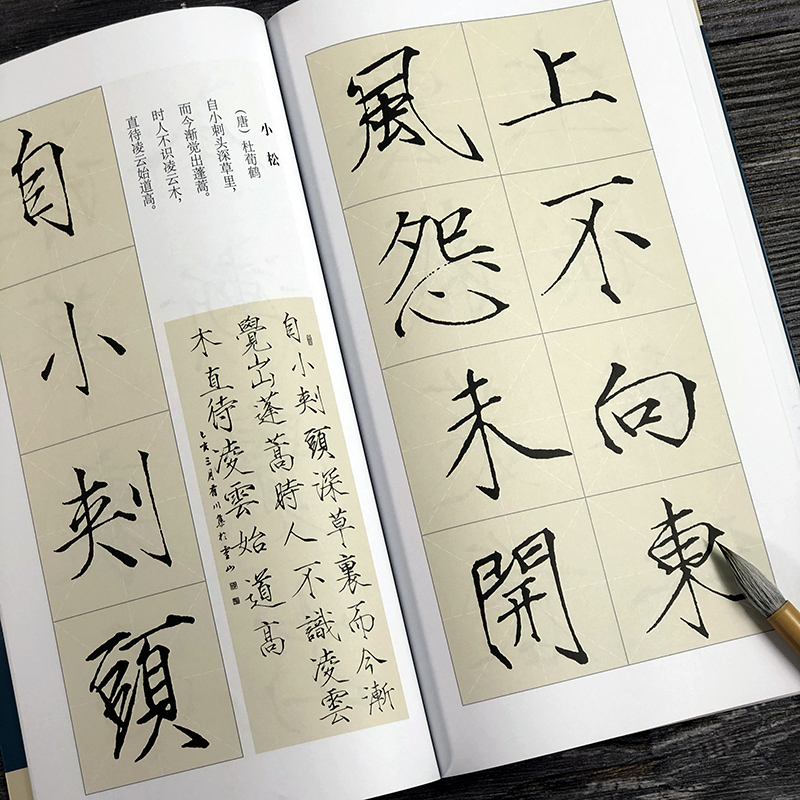 上不向東
風怨未開
小松
（唐）杜荀鹤
自小刺头深草里，
而今渐觉出蓬蒿。
时人不识凌云木，
直待凌云始道高。
自小刺頭深草裏而今漸
覺出蓬蒿時人不識凌雲
木直待凌雲始道高
己亥三月川集於
自小刺頭